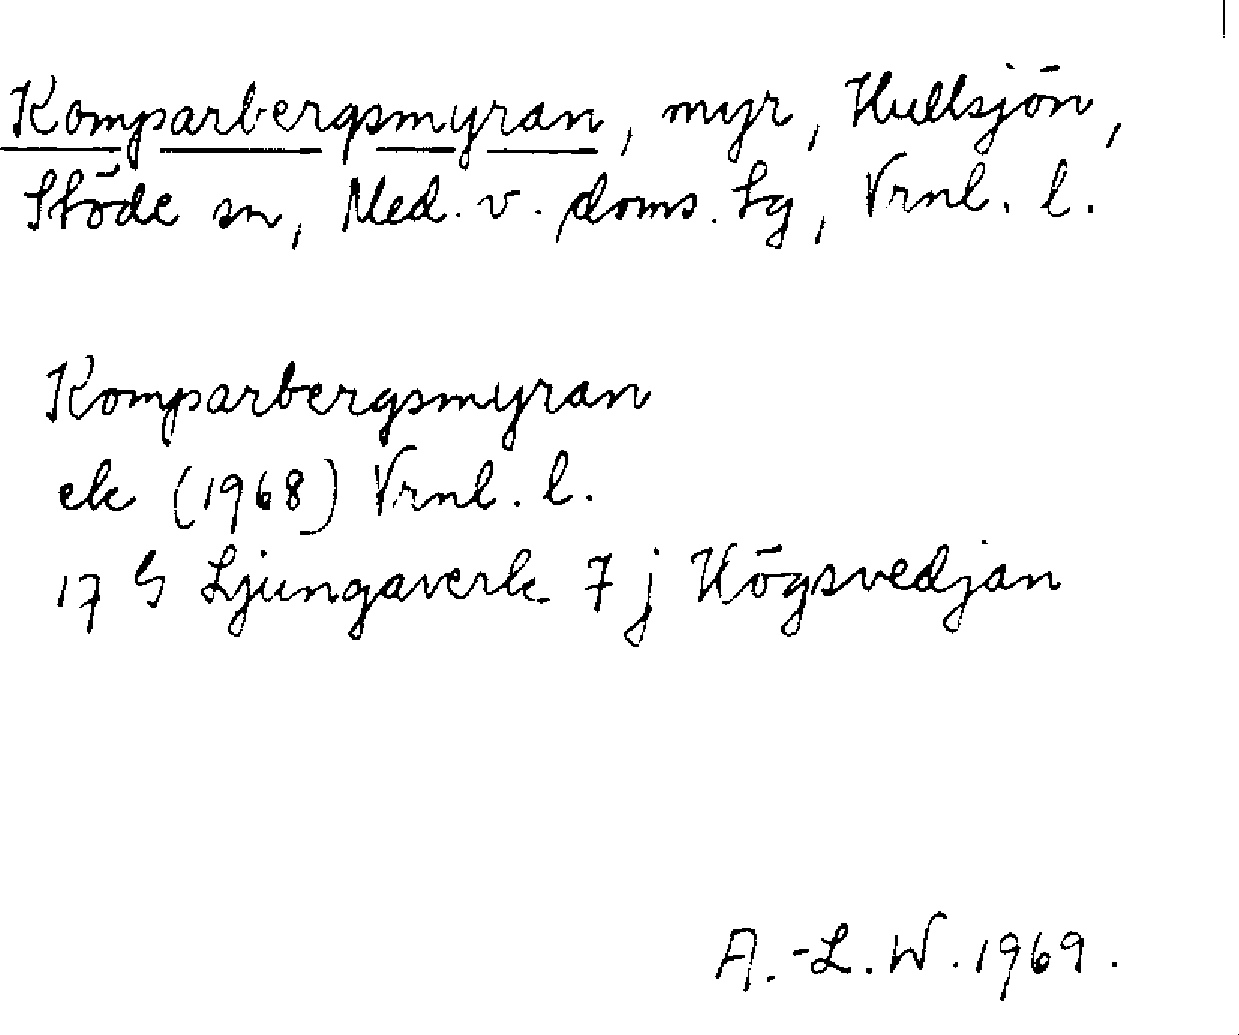 Komparbergsmyran, myr, Hullsjön,
Stöde sn, Med. v. doms. Lg, Vrnl. l.
Komparbergsmyran
ek (1968) Vrnl. l.
17 G Ljungaverk 7 j Högsvedjan
A.-L. W. 1969.